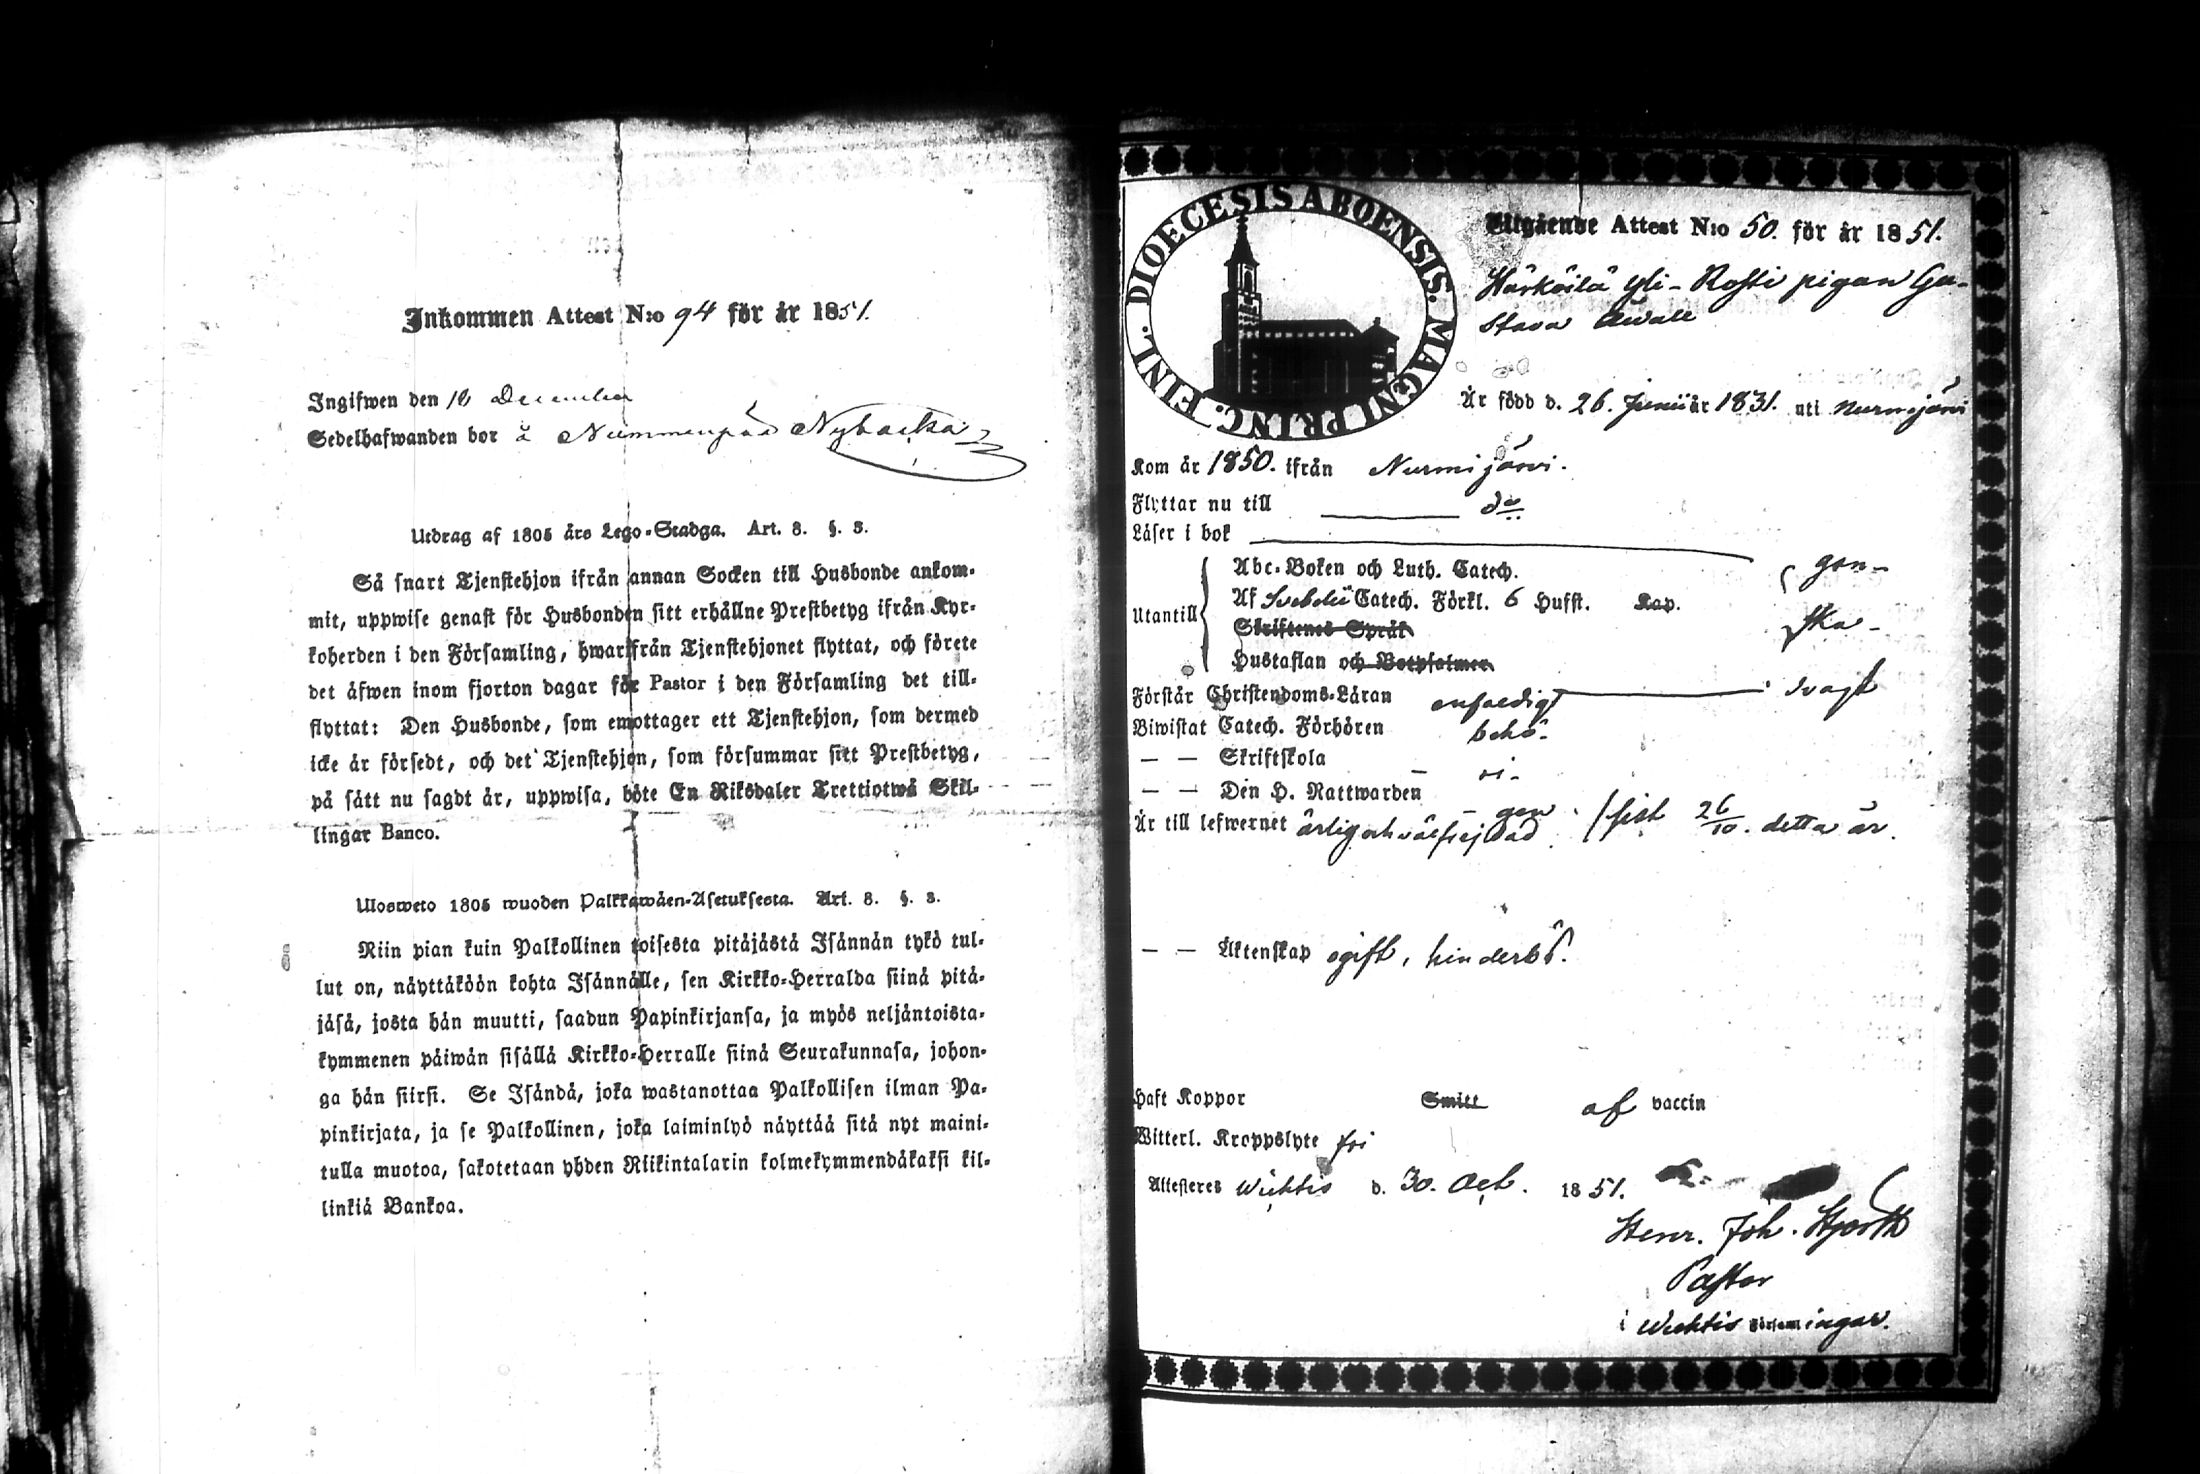 Inkommen Attest N:o 94 för år 1851.
Ingifwen den 10 December
Sedelhafwanden bor å Nummenpää Nybacka
Utdrag af 1805 års Lego-Stadga. Art. 8. §. 3.
Så snart Tjenstehjon ifrån annan Socken till Husbonde ankom-
mit, uppwise genast för Husbonden sitt erhållne Prestbetyg ifrån Kyr-
koherden i den Församling, hwarifrån Tjenstehjonet flyttat, och förete
det äfwen inom fjorton dagar för Pastor i den Församling det till-
flyttat: Den Husbonde, som emottager ett Tjenstehjon, som dermed
icke är försedt, och det Tjenstehjon, som försummar sitt Prestbetyg,
på sått nu sagdt är, uppwisa, böte En Riksdaler Trettiotwå Skil-
lingar Banco.
Ulosweto 1805 wuoden Palkkawäen-Asetuksesta. Art. 8. §. 3.
Niin pian kuin Palkollinen toisesta pitäjästä Isännän tykö tul-
lut on, näyttäköön kohta Isännälle, sen Kirkko-Herralda siinä pitä-
jäsä, josta hän muutti, saadun Papinkirjansa, ja myös neljäntoista-
kymmenen päiwän sisällä Kirkko-Herralle siinä Seurakunnasa, johon-
ga hän siirsi. Se Isändä, joka wastanottaa Palkollisen ilman Pa-
pinkirjata, ja se Palkollinen, joka laiminlyö näyttää sitä nyt maini-
tulla muotoa, sakotetaan yhden Riikintalarin kolmekymmendäkaksi kil-
linkiä Bankoa.
DIOECESIS ABOENSIS. MAGNI PRINC. FINL.
Utgående Attest N:o 50. för år 1851.
Härköilä Yli-Rosti pigan Gu-
stava
Är född d. 26. Junii år 1831. uti Nurmijärvi
Kom år 1850. ifrån Nurmijärvi.
Flyttar nu till do
Läser i bok
Abc-Boken och Luth. Catech. gan-
Utantill Af Svebelii Catech. Förkl. 6 Hufst. Kap.
Skriftenes Språk ska-
Hustaflan och Botpsalmer
Förstår Christendoms-Läran enfaldigt svagt
Biwistat Catech. Förhören behö-
— — Skriftskola ri-
— — Den H. Nattwarden gen (sist 26/10. detta år.
Är till lefwernet ärlig och välfrejdad
— — Äktenskap ogift, hinderlös.
Haft Koppor Smitt af vaccin
Witterl. Kroppslyte fri
Attesteres Wichtis d. 30. Oct. 1851.
Henr. Joh. Hjorth
Pastor
i Wichtis Församlingar.